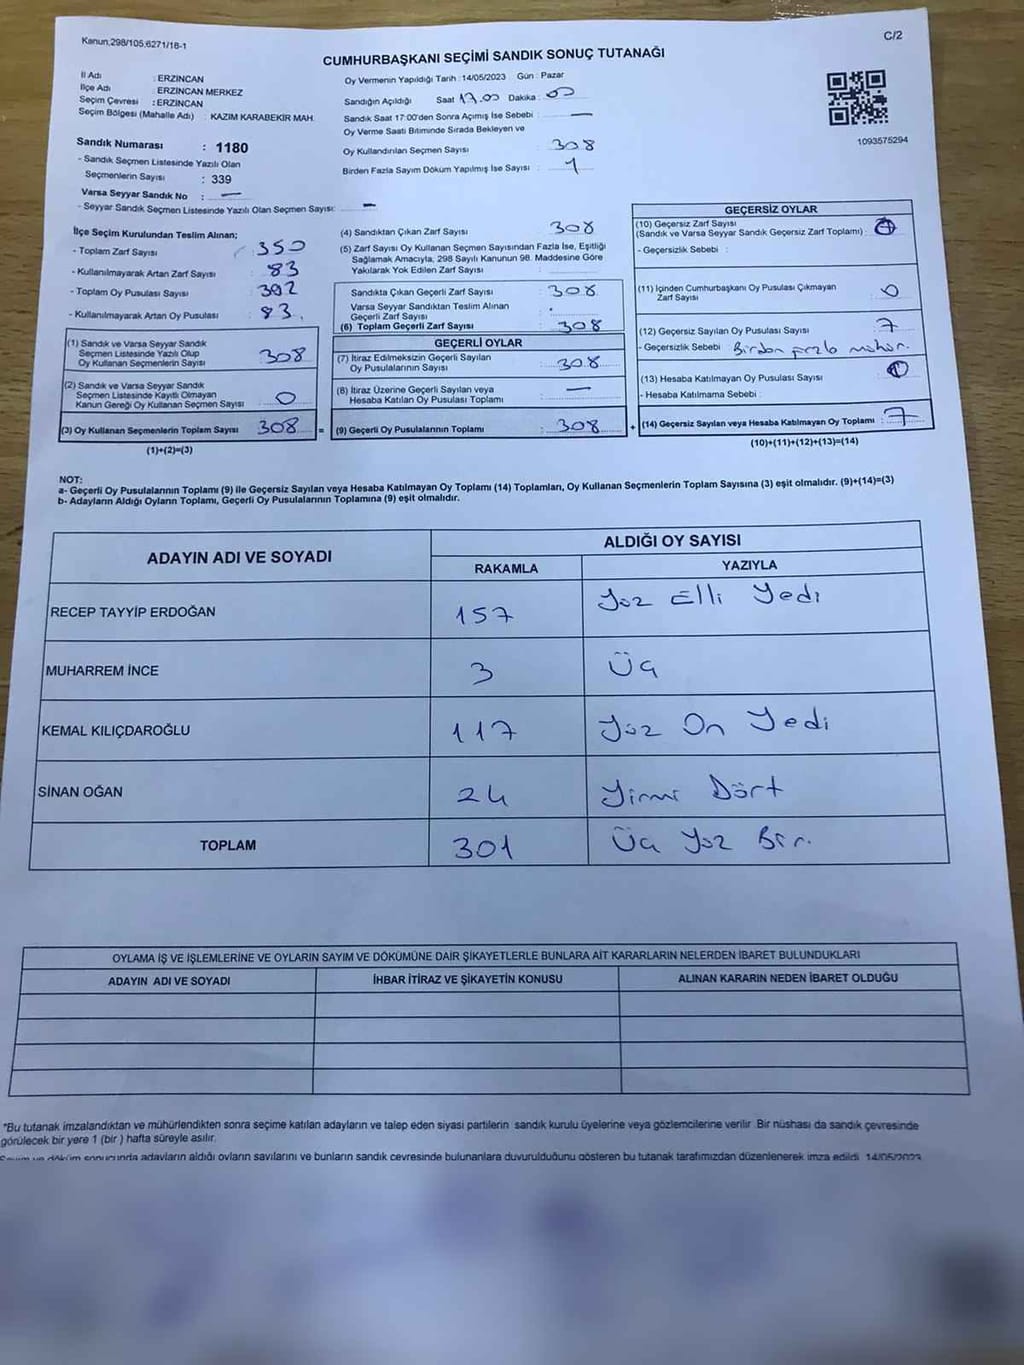 Kanun.298/105;6271/16-1
C/2
CUMHURBAŞKANI SEÇİMİ SANDIK SONUÇ TUTANAĞI
İl Adı : ERZİNCAN
İlçe Adı : ERZİNCAN MERKEZ
Seçim Çevresi : ERZİNCAN
Seçim Bölgesi (Mahalle Adı) : KAZIM KARABEKİR MAH.
Sandık Numarası : 1180
- Sandık Seçmen Listesinde Yazılı Olan
Seçmenlerin Sayısı : 339
Varsa Seyyar Sandık No : —
- Seyyar Sandık Seçmen Listesinde Yazılı Olan Seçmen Sayısı: —
Oy Vermenin Yapıldığı Tarih : 14/05/2023 Gün : Pazar
Sandığın Açıldığı Saat 17.00 Dakika : 00
Sandık Saat 17:00'den Sonra Açımış İse Sebebi : —
Oy Verme Saati Bitiminde Sırada Bekleyen ve
Oy Kullandırılan Seçmen Sayısı : 308
Birden Fazla Sayım Döküm Yapılmış İse Sayısı : 1
1093575294
İlçe Seçim Kurulundan Teslim Alınan;
- Toplam Zarf Sayısı : 350
- Kullanılmayarak Artan Zarf Sayısı : 83
- Toplam Oy Pusulası Sayısı : 392
- Kullanılmayarak Artan Oy Pusulası : 83
(1) Sandık ve Varsa Seyyar Sandık
Seçmen Listesinde Yazılı Olup
Oy Kullanan Seçmenlerin Sayısı 308
(2) Sandık ve Varsa Seyyar Sandık
Seçmen Listesinde Kayıtlı Olmayan
Kanun Gereği Oy Kullanan Seçmen Sayısı 0
(3) Oy Kullanan Seçmenlerin Toplam Sayısı 308
(1)+(2)=(3)
(4) Sandıktan Çıkan Zarf Sayısı : 308
(5) Zarf Sayısı Oy Kullanan Seçmen Sayısından Fazla İse, Eşitliği
Sağlamak Amacıyla, 298 Sayılı Kanunun 98. Maddesine Göre
Yakılarak Yok Edilen Zarf Sayısı :
Sandıkta Çıkan Geçerli Zarf Sayısı : 308
Varsa Seyyar Sandıktan Teslim Alınan
Geçerli Zarf Sayısı :
(6) Toplam Geçerli Zarf Sayısı : 308
GEÇERLİ OYLAR
(7) İtiraz Edilmeksizin Geçerli Sayılan
Oy Pusulalarının Sayısı : 308
(8) İtiraz Üzerine Geçerli Sayılan veya
Hesaba Katılan Oy Pusulası Toplamı : —
= (9) Geçerli Oy Pusulalarının Toplamı : 308
GEÇERSİZ OYLAR
(10) Geçersiz Zarf Sayısı
(Sandık ve Varsa Seyyar Sandık Geçersiz Zarf Toplamı) :
- Geçersizlik Sebebi :
(11) İçinden Cumhurbaşkanı Oy Pusulası Çıkmayan
Zarf Sayısı : 0
(12) Geçersiz Sayılan Oy Pusulası Sayısı : 7
- Geçersizlik Sebebi : Birden fazla mühür.
(13) Hesaba Katılmayan Oy Pusulası Sayısı :
- Hesaba Katılmama Sebebi :
+ (14) Geçersiz Sayılan veya Hesaba Katılmayan Oy Toplamı : 7
(10)+(11)+(12)+(13)=(14)
NOT:
a- Geçerli Oy Pusulalarının Toplamı (9) ile Geçersiz Sayılan veya Hesaba Katılmayan Oy Toplamı (14) Toplamları, Oy Kullanan Seçmenlerin Toplam Sayısına (3) eşit olmalıdır. (9)+(14)=(3)
b- Adayların Aldığı Oyların Toplamı, Geçerli Oy Pusulalarının Toplamına (9) eşit olmalıdır.
ADAYIN ADI VE SOYADI
ALDIĞI OY SAYISI
RAKAMLA YAZIYLA
RECEP TAYYİP ERDOĞAN 157 Yüz Elli Yedi
MUHARREM İNCE 3 Üç
KEMAL KILIÇDAROĞLU 117 Yüz On Yedi
SİNAN OĞAN 24 Yirmi Dört
TOPLAM 301 Üç Yüz Bir.
OYLAMA İŞ VE İŞLEMLERİNE VE OYLARIN SAYIM VE DÖKÜMÜNE DAİR ŞİKAYETLERLE BUNLARA AİT KARARLARIN NELERDEN İBARET BULUNDUKLARI
ADAYIN ADI VE SOYADI İHBAR İTİRAZ VE ŞİKAYETİN KONUSU ALINAN KARARIN NEDEN İBARET OLDUĞU
*Bu tutanak imzalandıktan ve mühürlendikten sonra seçime katılan adayların ve talep eden siyasi partilerin sandık kurulu üyelerine veya gözlemcilerine verilir. Bir nüshası da sandık çevresinde
görülecek bir yere 1 (bir ) hafta süreyle asılır.
Sayım ve döküm sonucunda adayların aldığı oyların sayılarını ve bunların sandık çevresinde bulunanlara duyurulduğunu gösteren bu tutanak tarafımızdan düzenlenerek imza edildi. 14/05/2023